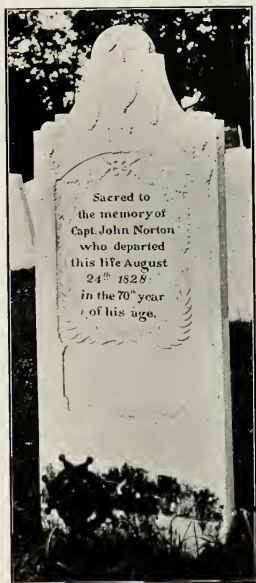 Sacred to
the memory of
Capt. John Norton
who departed
this life August
24th 1828
in the 70th year
of his age.